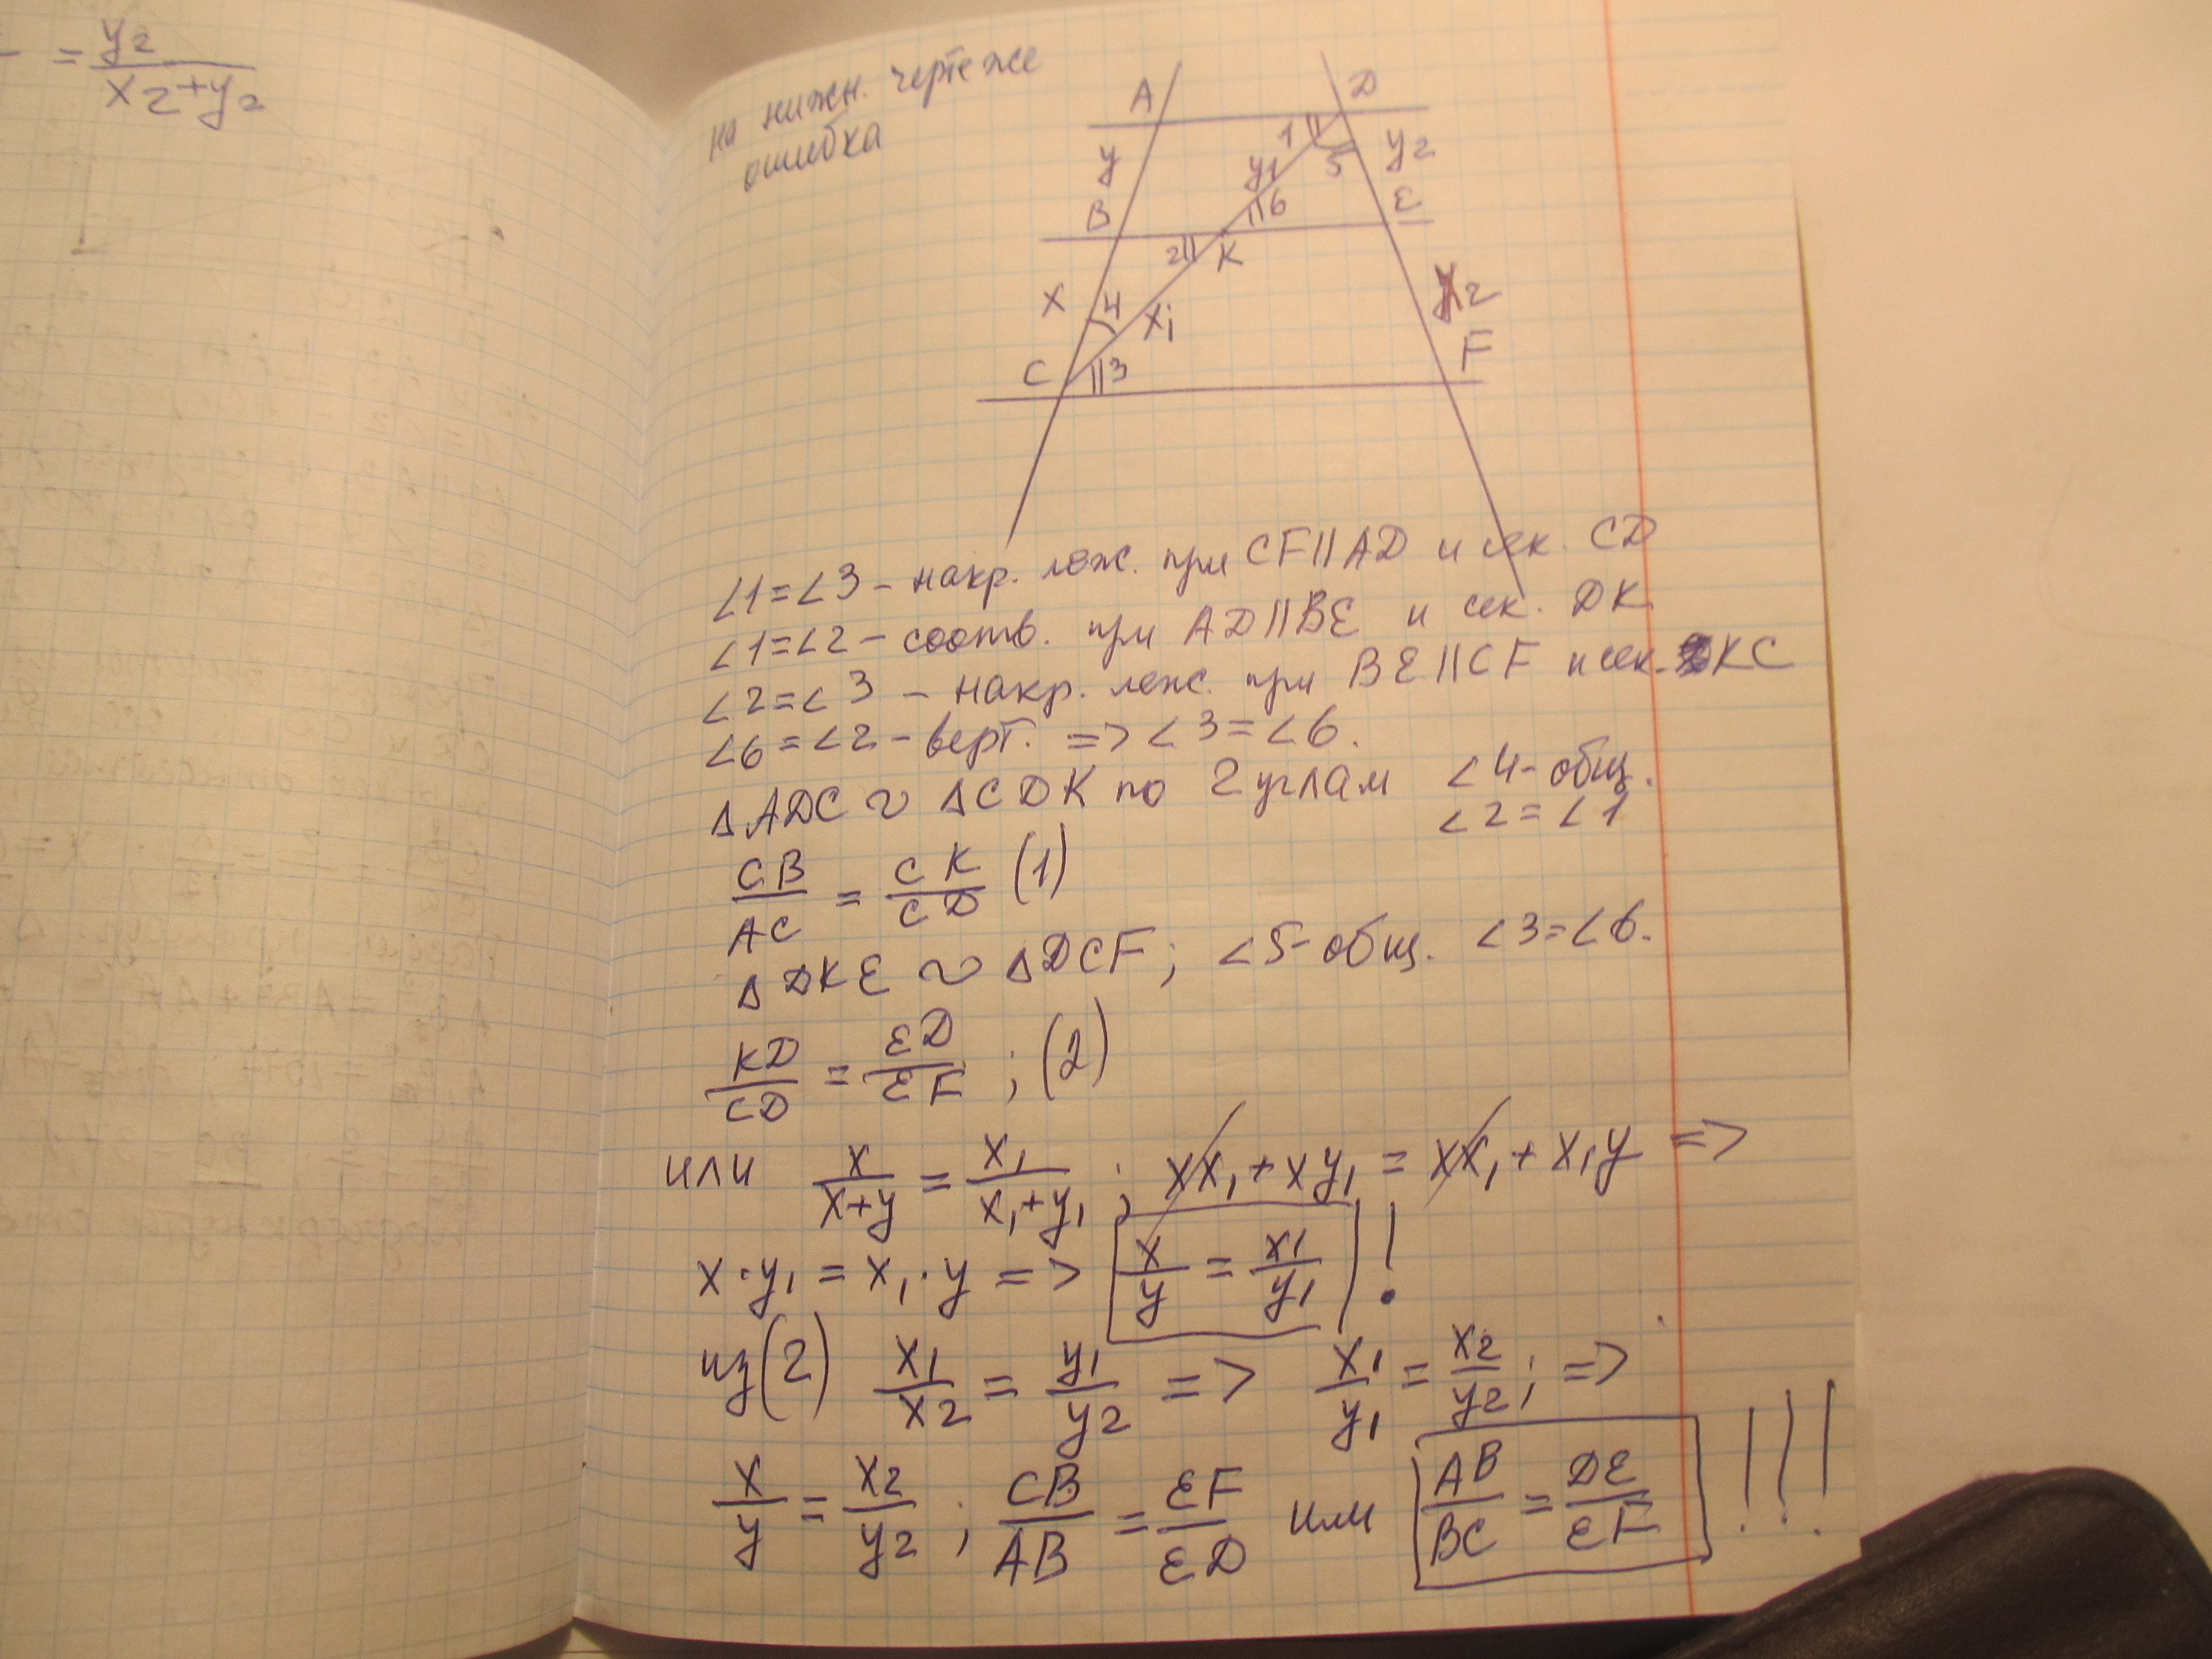 = y2 / x2+y2
на нижн. чертеже
ошибка
A D
y 1 y1 5 y2
B 6 E
2 K
x 4 x1 x2
C 3 F
∠1=∠3 – накр. леж. при CF||AD и сек. CD
∠1=∠2 – соотв. при AD||BE и сек. DK
∠2=∠3 – накр. леж. при BE||CF и сек. KC
∠6=∠2 – верт. => ∠3=∠6.
∆ADC ~ ∆CDK по 2 углам ∠4-общ.
∠2=∠1
CB/AC = CK/CD (1)
∆DKE ~ ∆DCF; ∠5-общ. ∠3=∠6.
KD/CD = ED/EF ; (2)
или x/x+y = x1/x1+y1 ; xx1+xy1 = xx1+x1y =>
x·y1 = x1·y => x/y = x1/y1 !
из (2) x1/x2 = y1/y2 => x1/y1 = x2/y2 ; =>
x/y = x2/y2 ; CB/AB = EF/ED или AB/BC = DE/EF !!!